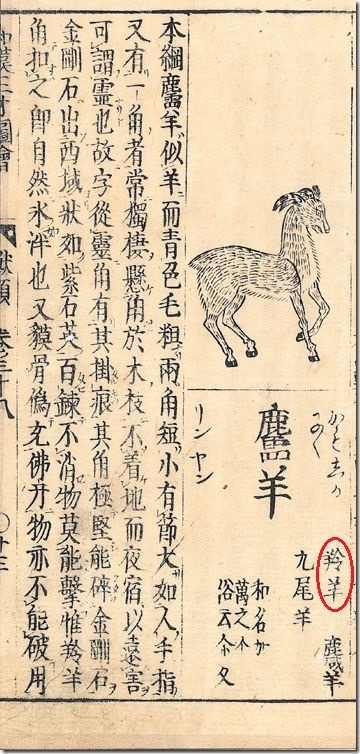 麢羊
リン ヤン
羚羊 麙羊
九尾羊
和名加
本綱麢羊似羊而青色毛粗兩角短小有節大如人手指
又有一角者常獨棲懸角於木枝不着地而夜宿以遠害
可謂靈也故字從靈角有其掛痕其角極堅能碎金剛石
金剛石出西域狀如紫石英百鍊不消物莫能擊惟羚羊
角扣之卽自然氷泮也又貘骨僞充佛牙物亦不能破用
三才圖會 獸類 卷之三十八